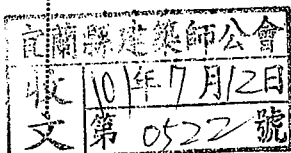 宜蘭縣建築師公會
收文
101年7月12日
第0522號